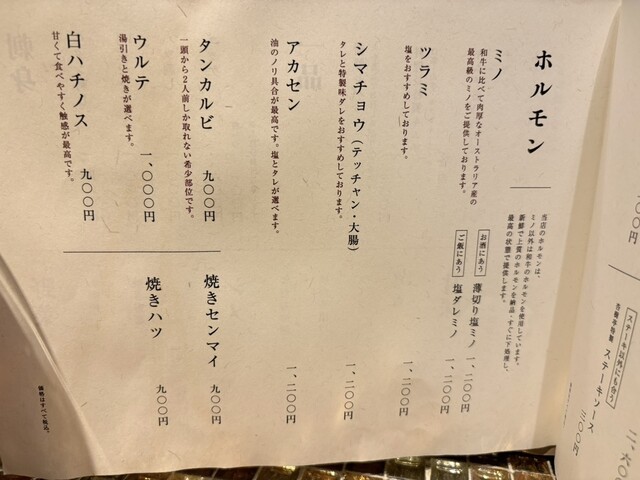 ホルモン
当店のホルモンは、
ミノ以外は和牛のホルモンを使用しています。
新鮮で上質のホルモンを納品・すぐに下処理し、
最高の状態で提供します。
ミノ
和牛に比べて肉厚なオーストラリア産の
最高級のミノをご提供しております。
お酒にあう 薄切り塩ミノ 一、二〇〇円
ご飯にあう 塩ダレミノ 一、二〇〇円
ツラミ 一、二〇〇円
塩をおすすめしております。
シマチョウ(テッチャン・大腸) 一、二〇〇円
タレと特製味ダレをおすすめしております。
アカセン 一、二〇〇円
油のノリ具合が最高です。塩とタレが選べます。
タンカルビ 九〇〇円
一頭から2人前しか取れない希少部位です。
ウルテ 一、〇〇〇円
湯引きと焼きが選べます。
白ハチノス 九〇〇円
甘くて食べやすく触感が最高です。
焼きセンマイ 九〇〇円
焼きハツ 九〇〇円
価格はすべて税込。
ステーキ以外にも合う
ステーキソース 三〇〇円